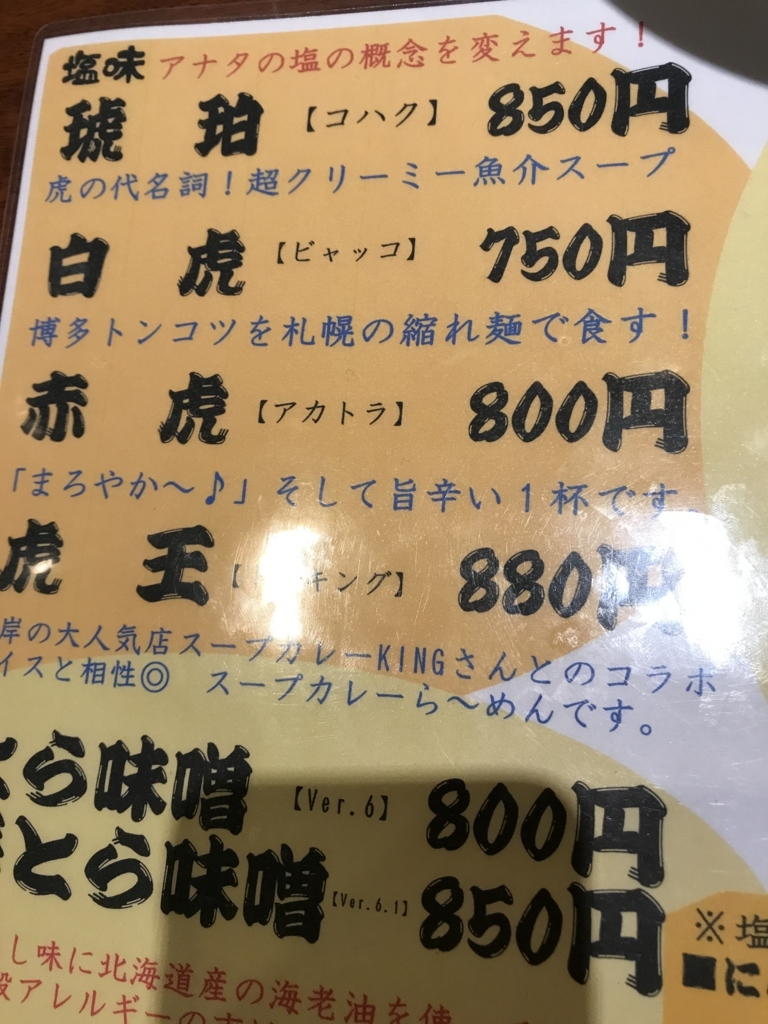 塩味 アナタの塩の概念を変えます！
琥珀 【コハク】 850円
虎の代名詞！超クリーミー魚介スープ
白虎 【ビャッコ】 750円
博多トンコツを札幌の縮れ麺で食す！
赤虎 【アカトラ】 800円
「まろやか～♪」そして旨辛い１杯です。
虎王 キング】 880円
岸の大人気店スープカレーKINGさんとのコラボ
イスと相性◎ スープカレーら～めんです。
とら味噌 【Ver.6】 800円
とら味噌 【Ver.6.1】 850円
し味に北海道産の海老油を使
アレルギーの
※塩
■に